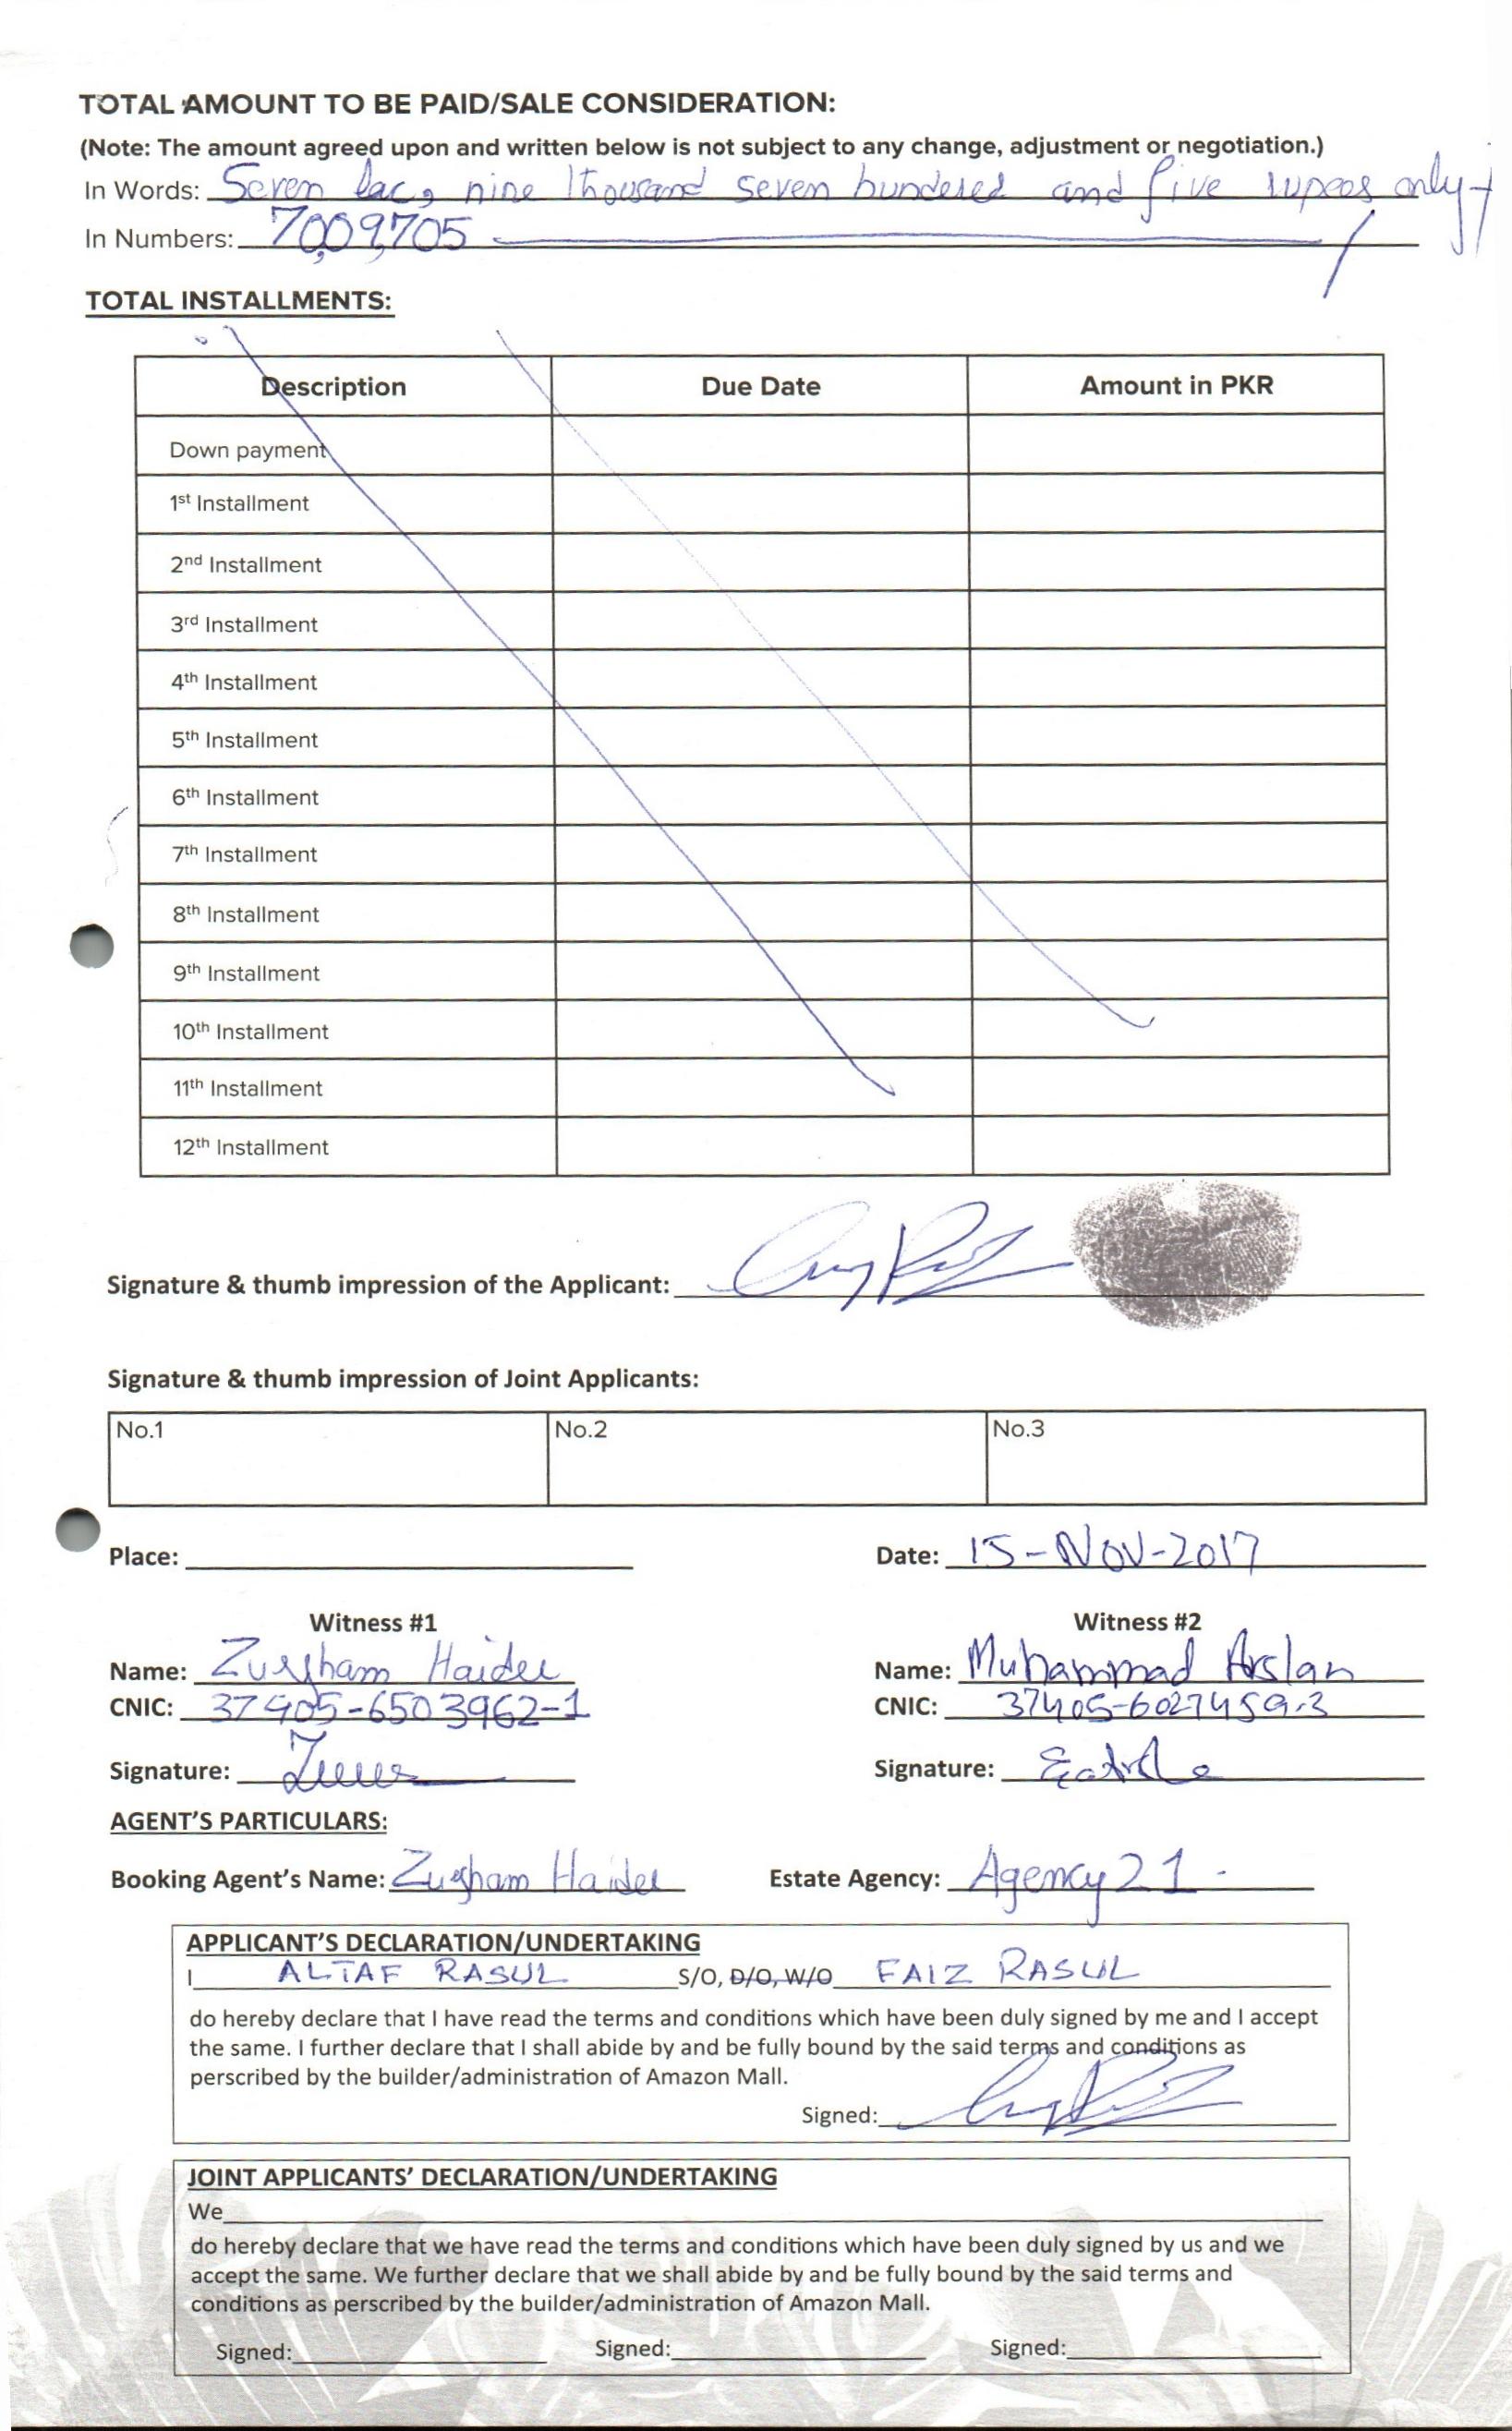 TOTAL AMOUNT TO BE PAID/SALE CONSIDERATION:
(Note: The amount agreed upon and written below is not subject to any change, adjustment or negotiation.)
In Words: Seven lac, nine thousand seven hundered and five rupees only
In Numbers: 7,009,705
TOTAL INSTALLMENTS:
Description Due Date Amount in PKR
Down payment
1st Installment
2nd Installment
3rd Installment
4th Installment
5th Installment
6th Installment
7th Installment
8th Installment
9th Installment
10th Installment
11th Installment
12th Installment
Signature & thumb impression of the Applicant:
Signature & thumb impression of Joint Applicants:
No.1 No.2 No.3
Place: Date: 15-NOV-2017
Witness #1 Witness #2
Name: Zurgham Haider Name: Muhammad Arslan
CNIC: 37405-6503962-1 CNIC: 37405-6027459-3
Signature: Signature:
AGENT'S PARTICULARS:
Booking Agent's Name: Zurgham Haider Estate Agency: Agency 21.
APPLICANT'S DECLARATION/UNDERTAKING
I ALTAF RASUL S/O, D/O, W/O FAIZ RASUL
do hereby declare that I have read the terms and conditions which have been duly signed by me and I accept
the same. I further declare that I shall abide by and be fully bound by the said terms and conditions as
perscribed by the builder/administration of Amazon Mall.
Signed:
JOINT APPLICANTS' DECLARATION/UNDERTAKING
We
do hereby declare that we have read the terms and conditions which have been duly signed by us and we
accept the same. We further declare that we shall abide by and be fully bound by the said terms and
conditions as perscribed by the builder/administration of Amazon Mall.
Signed: Signed: Signed: